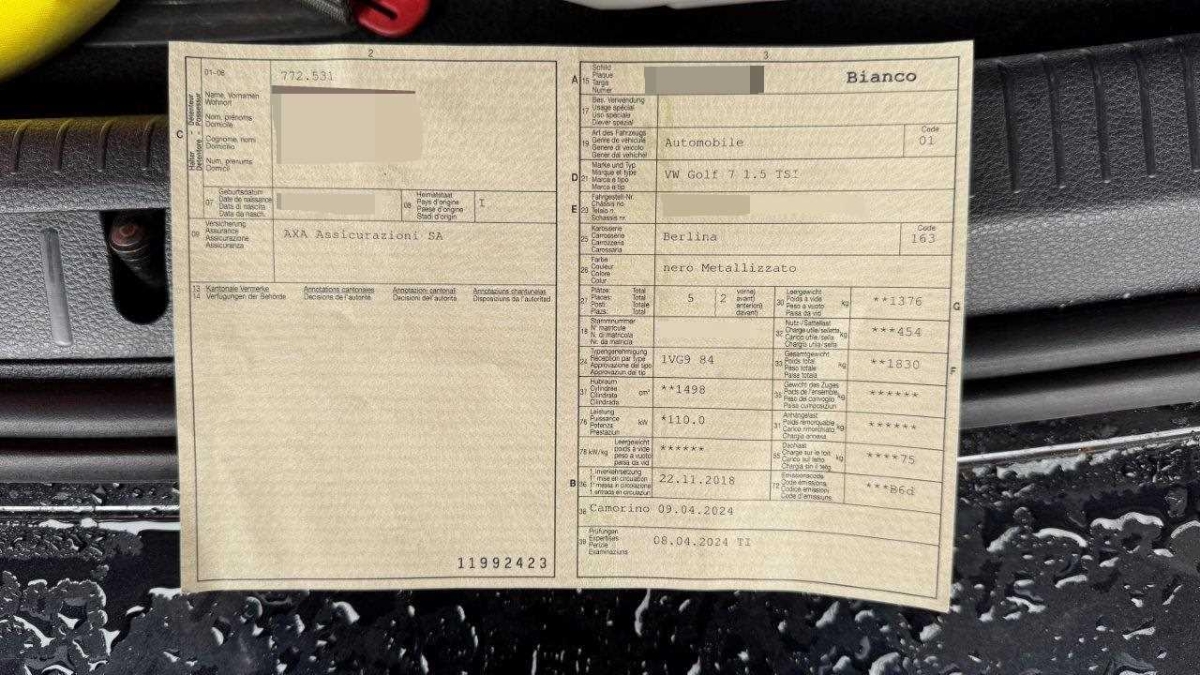 2
01–06
772.531
Name, Vornamen
Wohnort
Nom, prénoms
Domicile
Cognome, nomi
Domicilio
Num, prenums
Domicil
C
Halter - Détenteur
Detentore - Possessur
07
Geburtsdatum
Date de naissance
Data di nascita
Data da nasch.
08
Heimatstaat
Pays d'origine
Paese d'origine
Stadi d'origin
I
09
Versicherung
Assurance
Assicurazione
Assicuranza
AXA Assicurazioni SA
13
14
Kantonale Vermerke
Verfügungen der Behörde
Annotations cantonales
Décisions de l'autorité
Annotazioni cantonali
Decisioni dell'autorità
Annotaziuns chantunalas
Disposiziuns da l'autoritad
11992423
3
A
15
Schild
Plaque
Targa
Numer
Bianco
17
Bes. Verwendung
Usage spécial
Uso speciale
Diever spezial
19
Art des Fahrzeugs
Genre de véhicule
Genere di veicolo
Gener dal vehichel
Automobile
Code
01
D
21
Marke und Typ
Marque et type
Marca e tipo
Marca e tip
VW Golf 7 1.5 TSI
E
23
Fahrgestell-Nr.
Châssis no
Telaio n.
Schassis nr.
25
Karosserie
Carrosserie
Carrozzeria
Carossaria
Berlina
Code
163
26
Farbe
Couleur
Colore
Colur
nero Metallizzato
27
Plätze: Total
Places: Total
Posti: Totale
Plazs: Total
5
2
vorne)
avant)
anteriori)
davant)
30
Leergewicht
Poids à vide
Peso a vuoto
Paisa da vid
kg
**1376
G
18
Stammnummer
N° matricule
N. di matricola
Nr. da matricla
32
Nutz-/Sattellast
Charge utile/sellette
Carico utile/sella
Chargia utila/sella
kg
***454
24
Typengenehmigung
Réception par type
Approvazione del tipo
Approvaziun dal tip
1VG9 84
33
Gesamtgewicht
Poids total
Peso totale
Paisa totala
kg
**1830
F
37
Hubraum
Cylindrée
Cilindrata
Cilindrada
cm³
**1498
35
Gewicht des Zuges
Poids de l'ensemble
Peso del convoglio
Paisa cumposiziun
kg
******
76
Leistung
Puissance
Potenza
Prestaziun
kW
*110.0
31
Anhängelast
Poids remorquable
Carico rimorchiato
Chargia annexa
kg
******
78
kW/kg
Leergewicht
poids à vide
peso a vuoto
paisa da vid
******
55
Dachlast
Charge sur le toit
Carico sul tetto
Chargia sin il tetg
kg
****75
B
36
1. Inverkehrsetzung
1re mise en circulation
1a messa in circolazione
1. entrada en circulaziun
22.11.2018
72
Emissionscode
Code émissions
Codice emissioni
Code d'emissiuns
***B6d
38
Camorino 09.04.2024
39
Prüfungen
Expertises
Perizie
Examinaziuns
08.04.2024 TI